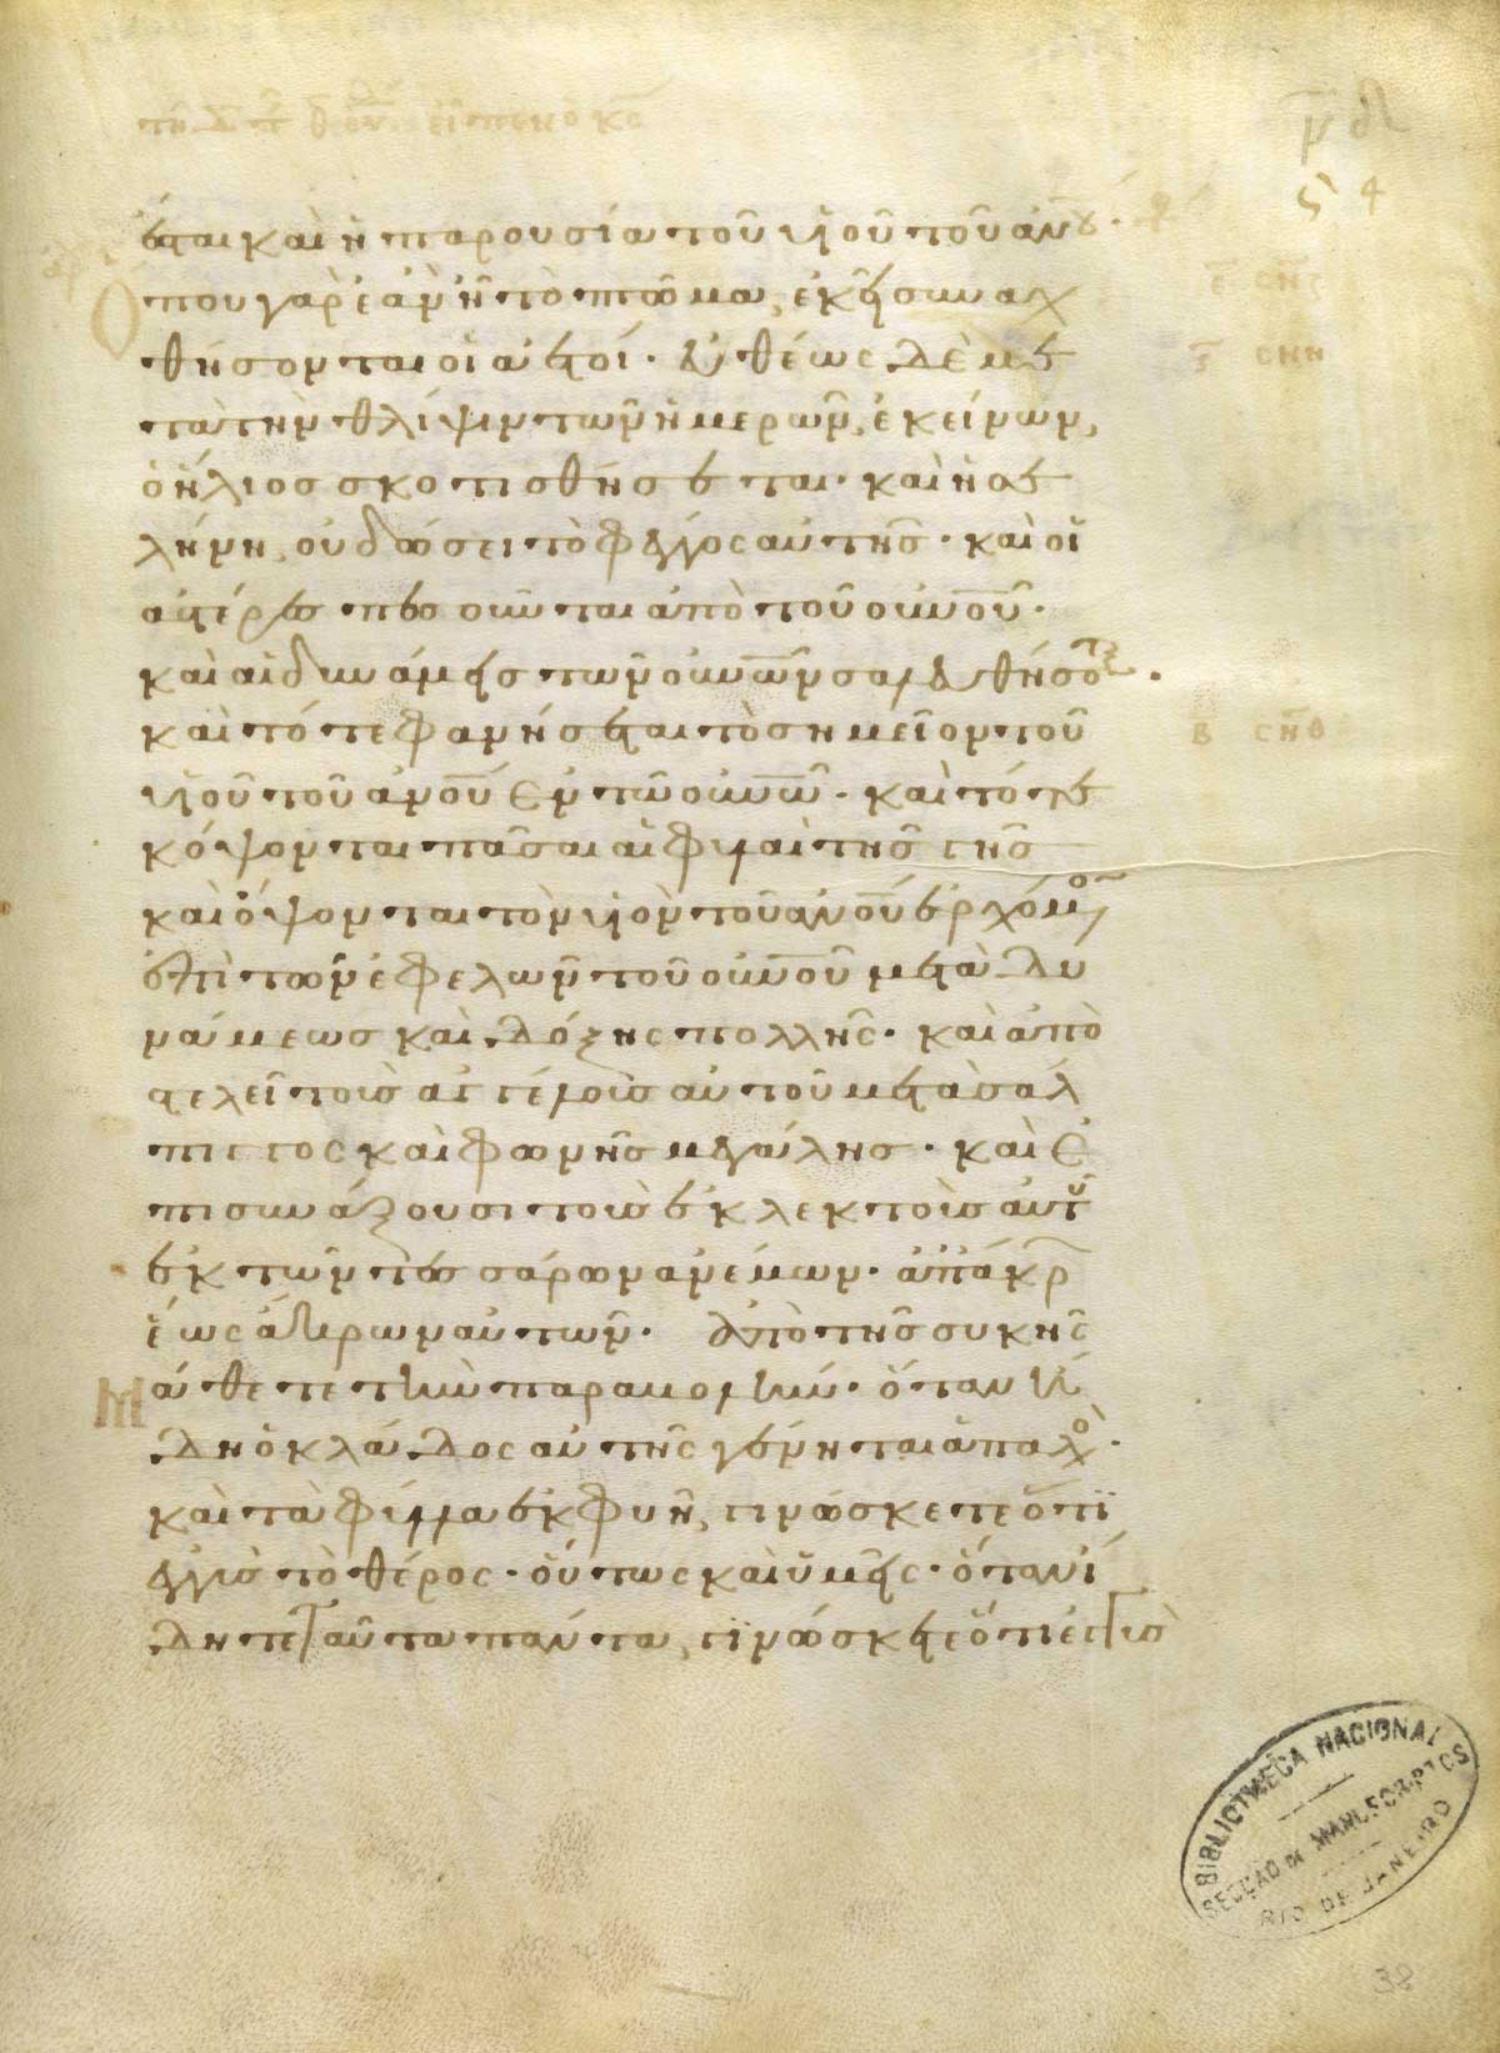 ἔσται καὶ ἡ παρουσία τοῦ υἱοῦ τοῦ ἀνου·
Ὅπου γὰρ ἐὰν ἦ τὸ πτῶμα, ἐκεῖ συναχ
θήσονται οἱ ἀετοί· εὐθέως δὲ με
τὰ τὴν θλίψιν τῶν ἡμερῶν, ἐκείνων,
ὁ ἥλιος σκοτισθήσεται· καὶ ἡ σε
λήνη, οὐ δώσει τὸ φέγγος αὐτῆς· καὶ οἱ
ἀστέρες πεσοῦνται ἀπὸ τοῦ οὐνοῦ·
καὶ αἱ δυνάμεις τῶν οὐνῶν σαλευθήσοται·
καὶ τότε φανήσεται τὸ σημεῖον τοῦ
υἱοῦ τοῦ ἀνού ἐν τῶ οὐνῶ· καὶ τότε
κόψονται πᾶσαι αἱ φυλαὶ τῆς γῆς
καὶ ὄψονται τὸν υἱὸν τοῦ ἀνού ἐρχόμενον
ἐπὶ τῶν νεφελῶν τοῦ οὐνοῦ μετὰ δυ
νάμεως καὶ δόξης πολλῆς· καὶ ἀπο
στελεῖ τοὺς ἀγγέλους αὐτοῦ μετὰ σάλ
πιγγος καὶ φωνῆς μεγάλης· καὶ ἐ
πισυνάξουσι τοὺς ἐκλεκτοὺς αὐτοῦ
ἐκ τῶν τεσσάρων ἀνέμων· ἀπ' ἄκρ
ἕως ἄκρων αὐτῶν· Ἀπὸ τῆς συκῆς
Μάθετε τὴν παραβολήν· ὅταν ἤ
δη ὁ κλάδος αὐτῆς γένηται ἁπαλὸ·
καὶ τὰ φύλλα ἐκφυῆ, γινώσκετε ὅτι
ἐγγὺς τὸ θέρος· οὕτως καὶ ὑμεῖς· ὅταν ἴ
δητε ταῦτα πάντα, γινώσκετε ὅτι ἐγγύς
Β ΣΝΘ
BIBLIOTHECA NACIONAL
SECÇÃO DE MANUSCRIPTOS
RIO DE JANEIRO
38